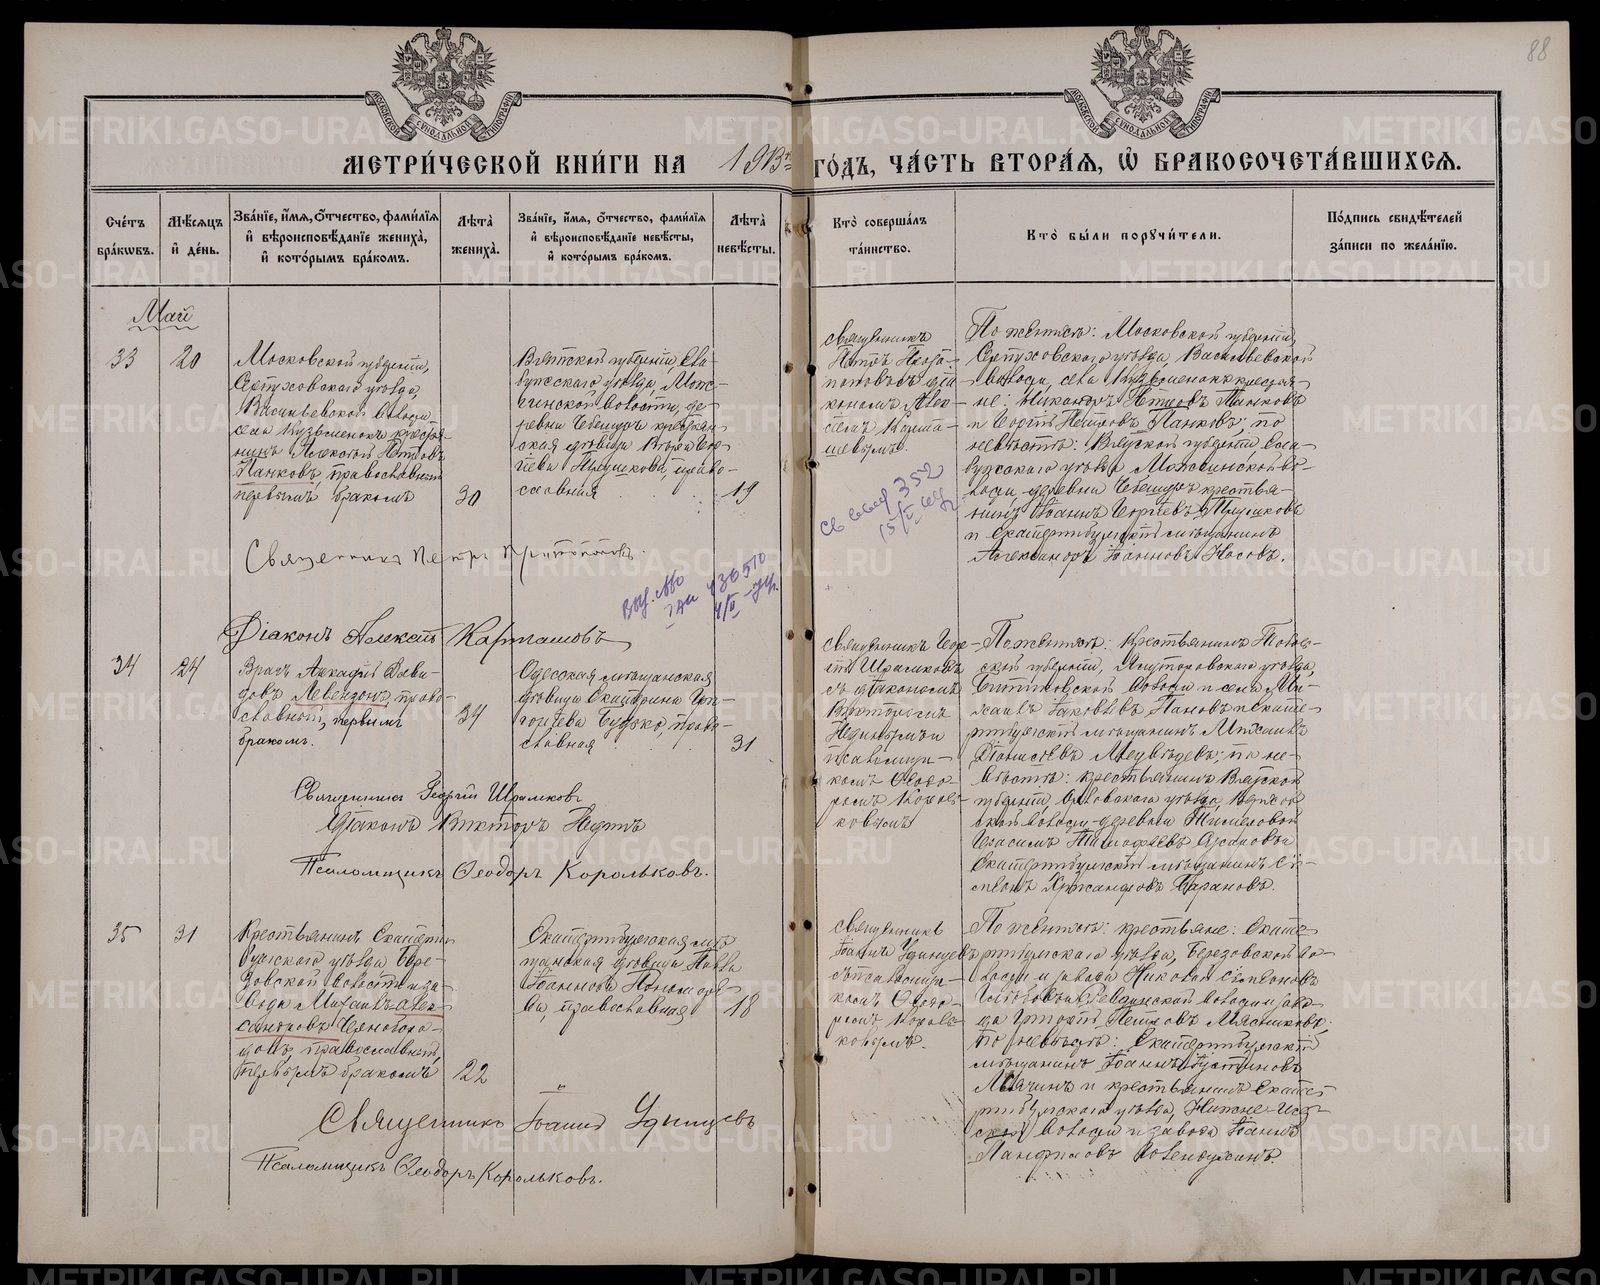 88
МОСКОВСКОЙ СѴНОДАЛЬНОЙ ТИПОГРАФІИ
МОСКОВСКОЙ СѴНОДАЛЬНОЙ ТИПОГРАФІИ
МЕТРИ́ЧЕСКОЙ КНИ́ГИ НА 1913 ГО́ДЪ, ЧА́СТЬ ВТОРА́Я, Ѡ҆ БРАКОСОЧЕТА́ВШИХСЯ.
Сче́тъ бра́кѡвъ.
Мѣ́сяцъ и҆ де́нь.
Зва́нїе, и҆́мя, ѻ҆́тчество, фами́лїя и҆ вѣроисповѣ́данїе жениха̀, и҆ кото́рымъ бра́комъ.
Лѣ́та̀ жениха̀.
Зва́нїе, и҆́мя, ѻ҆́тчество, фами́лїя и҆ вѣроисповѣ́данїе невѣ́сты, и҆ кото́рымъ бра́комъ.
Лѣ́та̀ невѣ́сты.
Кто̀ соверша́лъ та́инство.
Кто̀ бы́ли порꙋчи́тели.
По́дпись свидѣ́телей за́писи по жела́нїю.
Май
33
20
Московской губерніи,
Серпуховскаго уѣзда,
Васильевской волости,
села Кузьменокъ крестья-
нинъ Алексѣй Петровъ
Панковъ, православный
первымъ бракомъ
30
Вятской губерніи, Ела-
бужскаго уѣзда, Мож-
гинской волости, де-
ревни крестьян-
ская дѣвица
право-
славная
19
Священникъ
Петръ Прото-
поповъ съ діа-
кономъ Алек-
сѣемъ Карта-
шевымъ.
По женихѣ: Московской губерніи,
Серпуховского уѣзда, Васильевской
волости, села Кузьменокъ крестья-
не: Никаноръ Петровъ Панковъ
и Сергій Петровъ Панковъ; по
невѣстѣ: Вятской губерніи, Ела-
бужскаго уѣзда Можгинской во-
лости, деревни крестья-
нинъ Іоаннъ Сергѣевъ
и екатеринбургскій мѣщанинъ
Александръ Іоанновъ Носовъ.
352
Священникъ Петръ Протопоповъ.
Діаконъ Алексѣй Карташовъ
34
24
Врачъ Аркадій Дави-
довъ Левензонъ, право-
славный, первымъ
бракомъ.
34
Одесская мѣщанская
дѣвица Екатерина Гри-
горьева Будько, право-
славная
31
Священникъ Геор-
гій Шрамковъ
съ діакономъ
Викторомъ
и
псаломщи-
комъ Ѳеодо-
ромъ Король-
ковымъ
По женихѣ: крестьянинъ Тоболь-
ской губерніи, Ялуторовскаго уѣзда,
волости и села Ми-
хаилъ Іаковлевъ Пановъ и екате-
ринбургскій мѣщанинъ Михаилъ
Діонисіевъ Медвѣдевъ; по не-
вѣстѣ: крестьянинъ Вятской
губерніи, Орловскаго уѣзда,
ской волости, деревни
Герасимъ Тимоѳеевъ
Екатеринбургскій мѣщанинъ Сі-
меонъ Барановъ.
Священникъ Георгій Шрамковъ
Діаконъ Викторъ
Псаломщикъ Ѳеодоръ Корольковъ.
35
31
Крестьянинъ Екатерин-
бургскаго уѣзда Бере-
зовской волости и за-
вода Михаилъ Алек-
сандровъ
православный,
первымъ бракомъ
22
Екатеринбургская мѣ-
щанская дѣвица Павла
Іоаннова Пономаре-
ва, православная
18
Священникъ
Іоаннъ Удинцевъ
съ псаломщи-
комъ Ѳеодо-
ромъ Король-
ковымъ.
По женихѣ: крестьяне: Екате-
ринбургскаго уѣзда, Березовской во-
лости и завода Николай Сімеоновъ
Ревдинской волости и заво-
да Григорій Петровъ Мясниковъ;
По невѣстѣ: Екатеринбургскій
мѣщанинъ Іоаннъ
и крестьянинъ Екате-
ринбургскаго уѣзда, Нижне-Исет-
ской волости и завода Іоаннъ
Панфиловъ
Священникъ Іоаннъ Удинцевъ
Псаломщикъ Ѳеодоръ Корольковъ.
METRIKI.GASO-URAL.RU